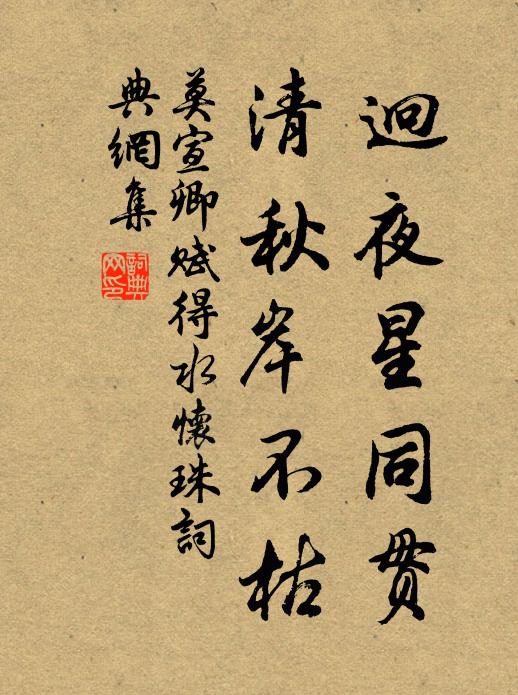 迥夜星同貫
清秋岸不枯
莫宣卿賦得水懷珠詞
典網集
詞典網印